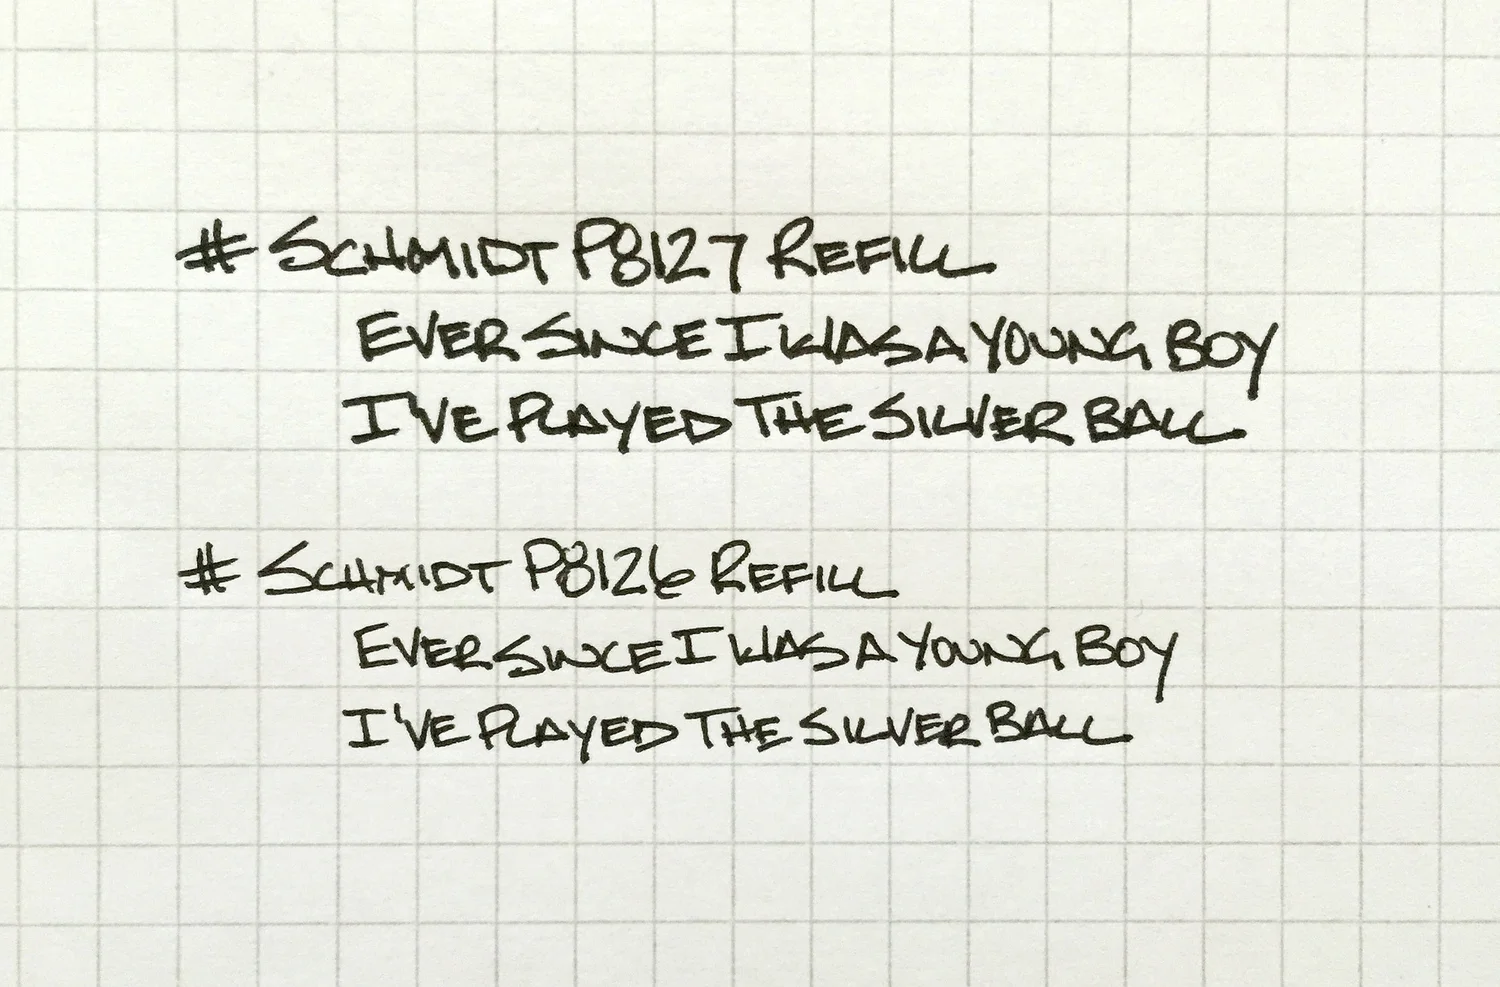 # SCHMIDT P8127 REFILL
EVER SINCE I WAS A YOUNG BOY
I'VE PLAYED THE SILVER BALL
# SCHMIDT P8126 REFILL
EVER SINCE I WAS A YOUNG BOY
I'VE PLAYED THE SILVER BALL